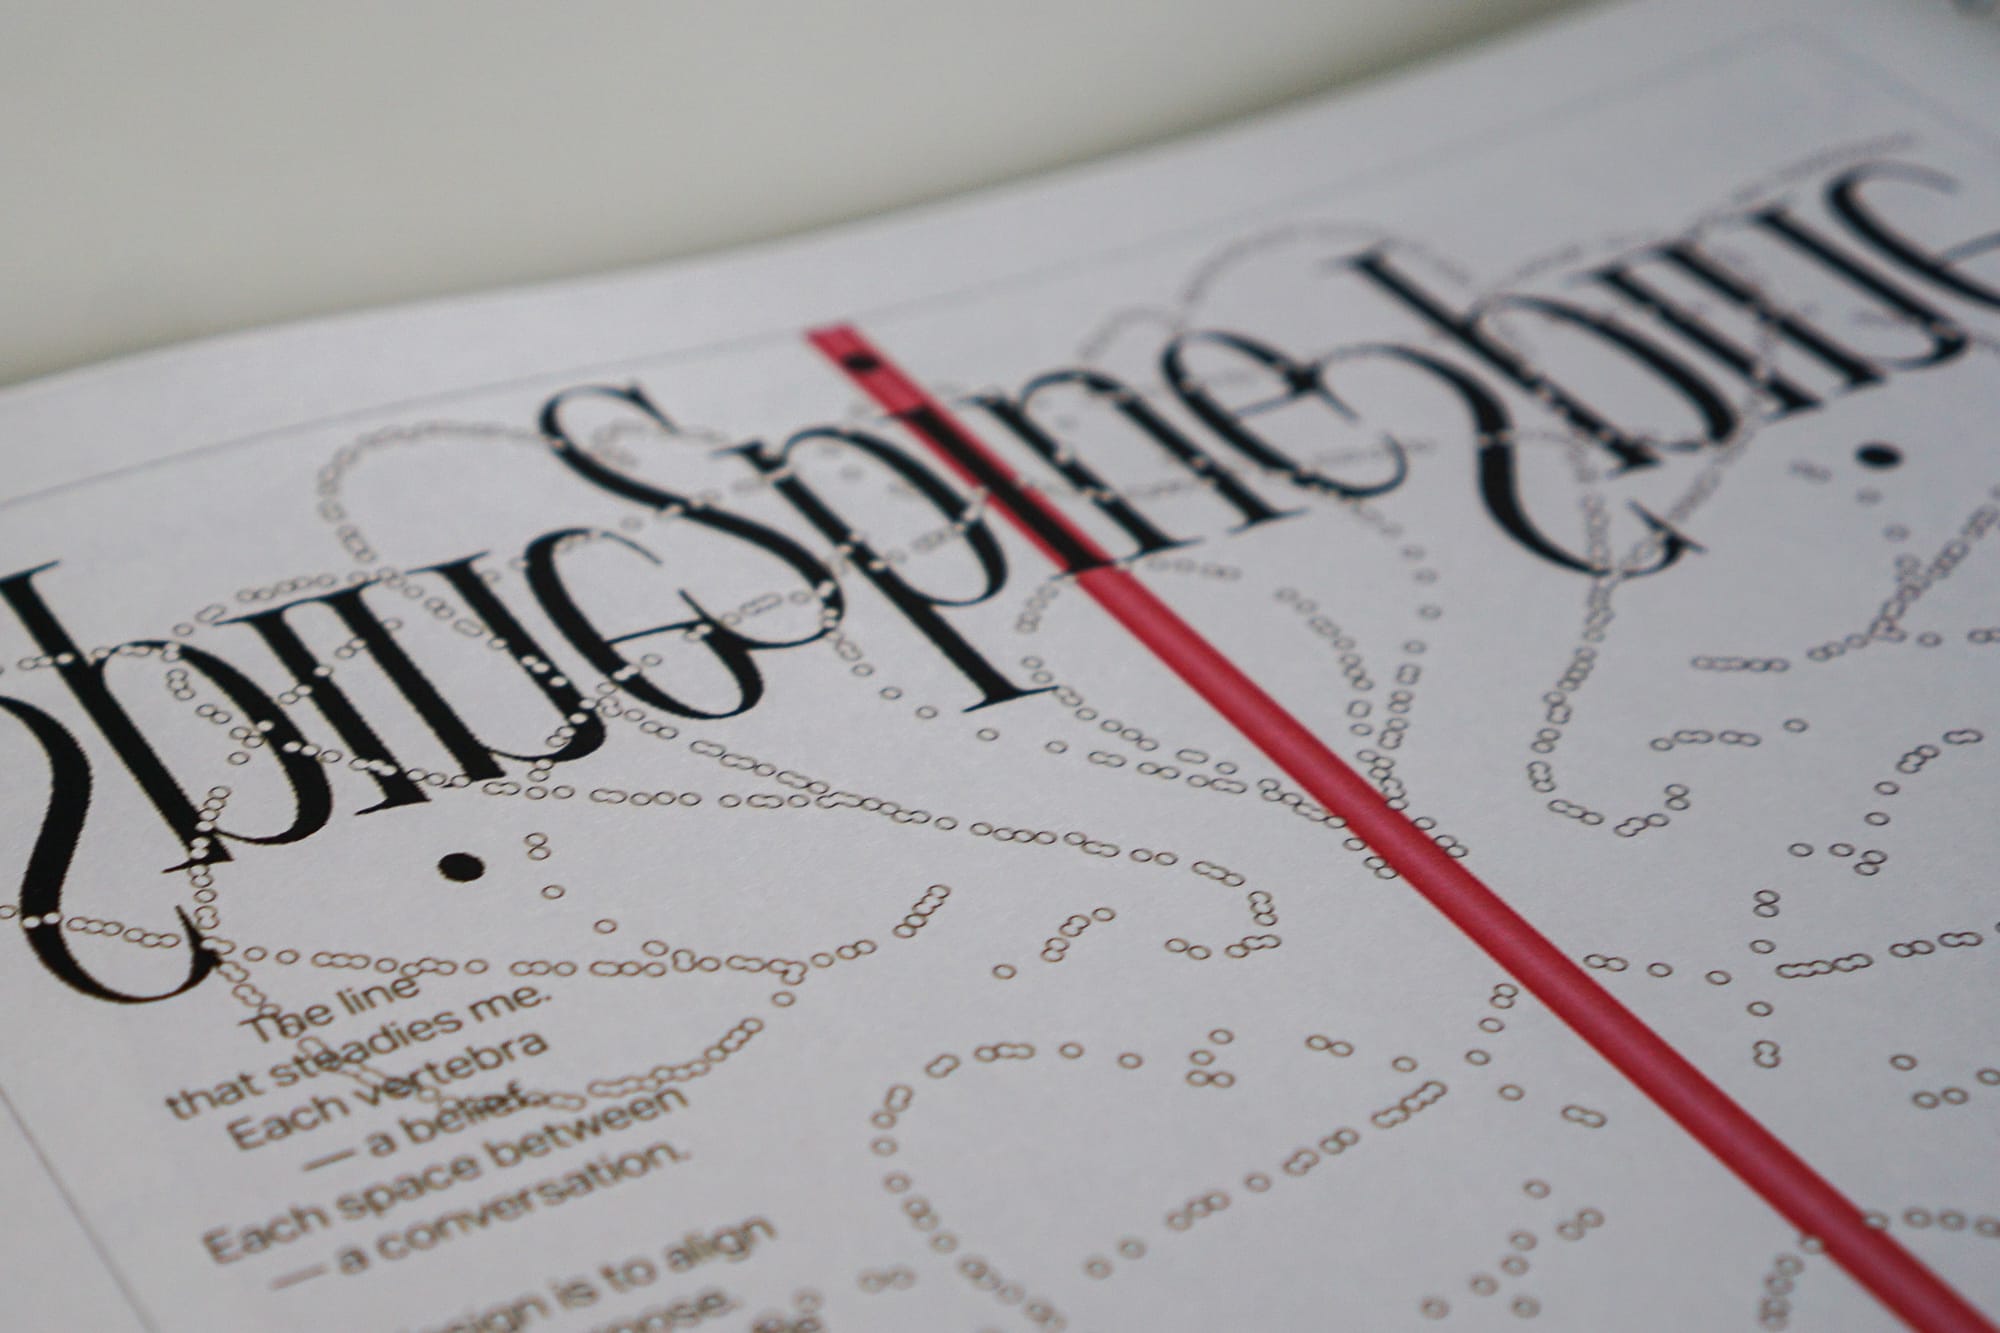 SpineSpineSpine
The line
that steadies me.
Each vertebra
— a belief.
Each space between
— a conversation.
is to align